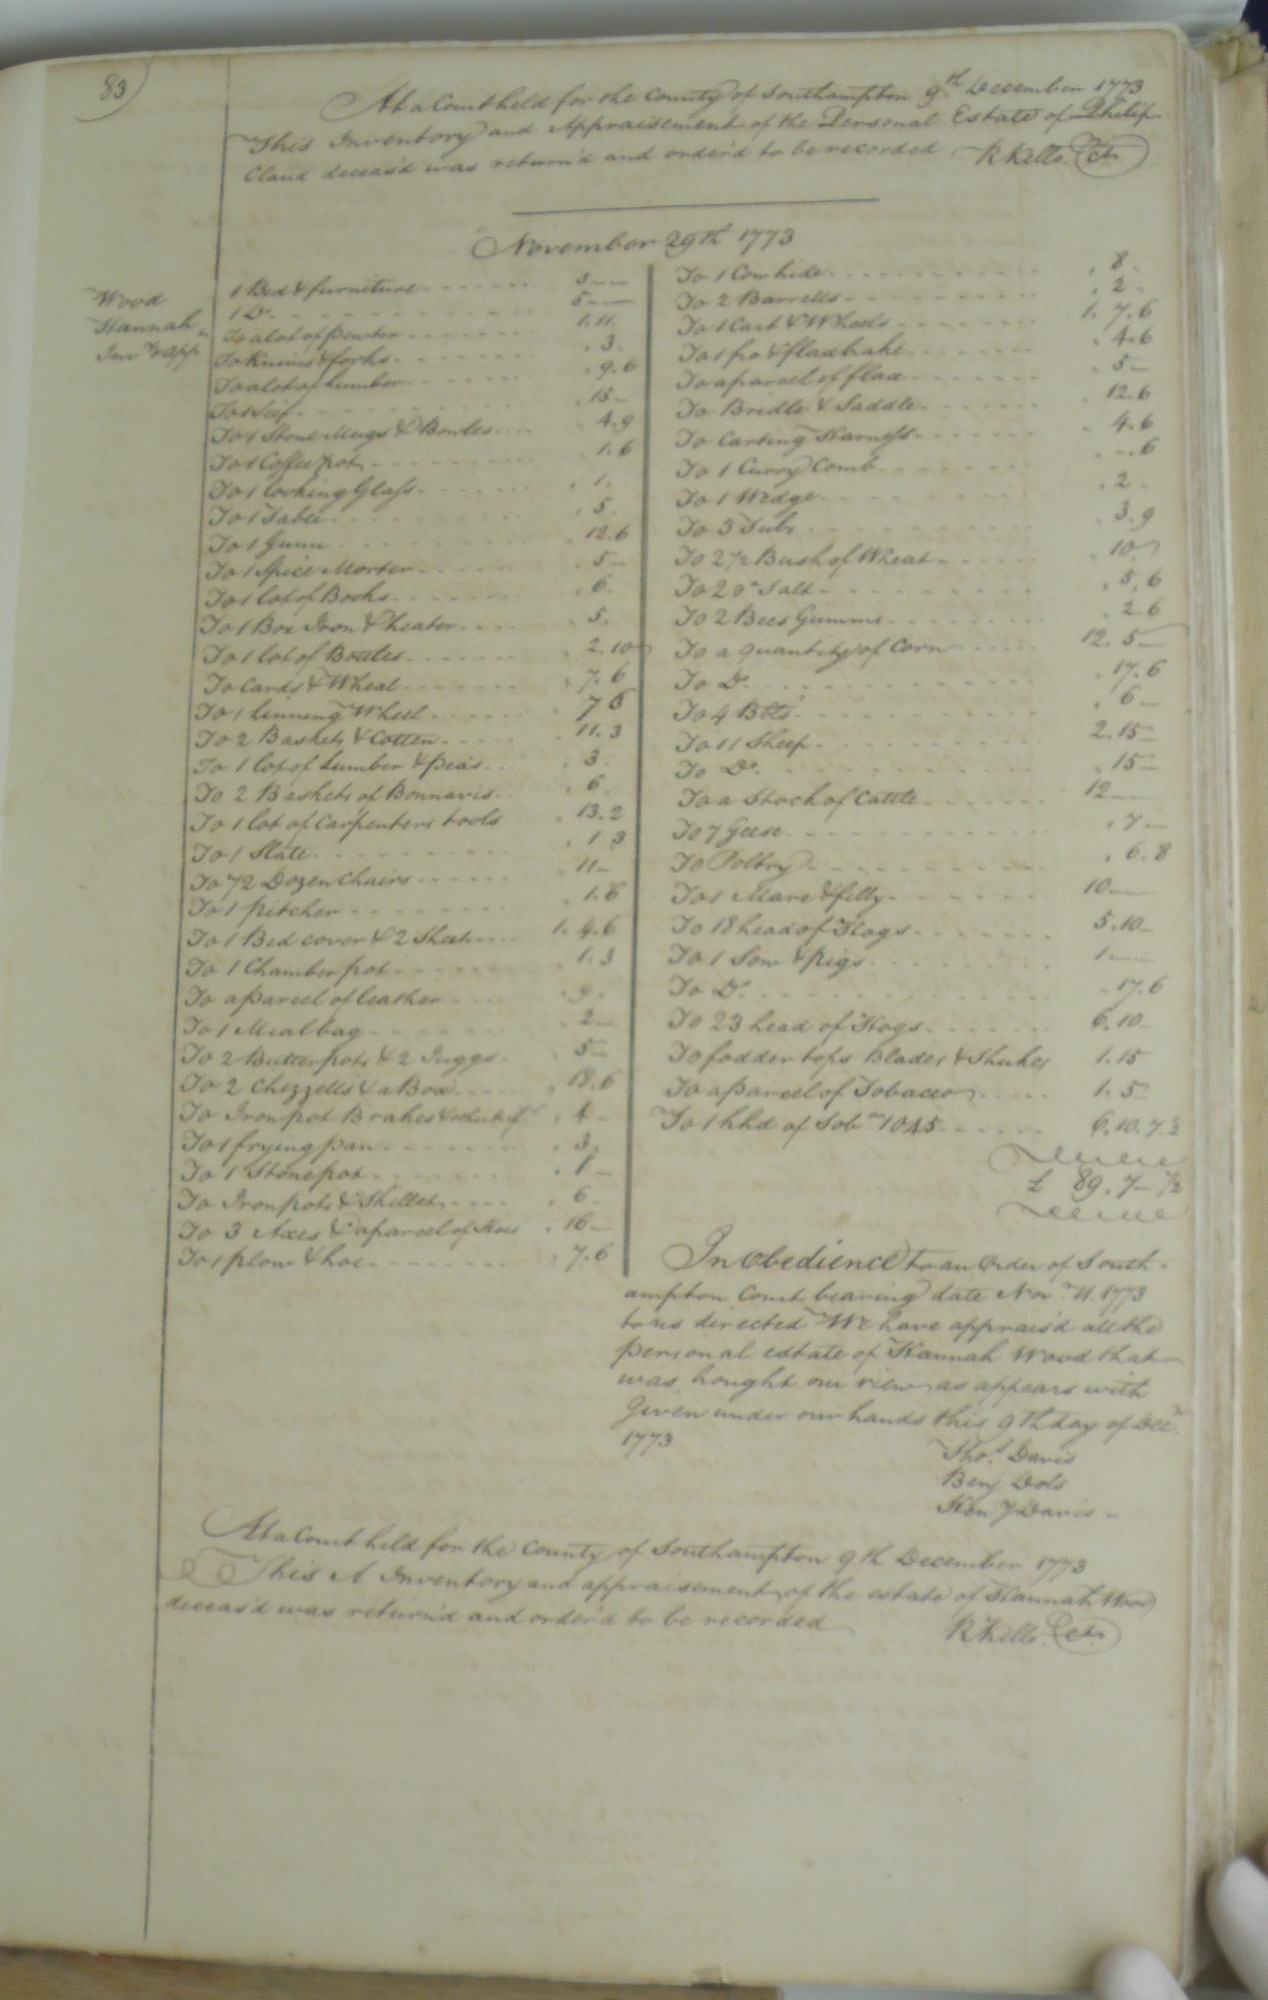 83
At a Court held for the County of Southampton 9th December 1773
This Inventory and Appraisement of the Personal Estate of Philip
Claud deceas'd was return'd and order'd to be recorded R Kello Ct
November 29th 1773
Wood
Hannah
Inv & app
1 Bed & furniture 5 — —
1 Do 5 — —
To a lot of pewter 1.11.
To Knives & forks .3.
To a lot of Lumber .9.6
To 1 .15—
To 1 Stone Mugs & Bowles .4.9
To 1 Coffee pot 1.6
To 1 looking Glass .1.
To 1 Table .5.
To 1 Gunn .12.6
To 1 Spice Morter .5—
To 1 lot of Books .6.
To 1 Box Iron & heater .5.
To 1 lot of Bottles .2.10
To Cards & Wheal .7.6
To 1 linning Wheel .7 6
To 2 Baskets & Cotten .11.3
To 1 lot of Lumber & peas .3.
To 2 Baskets of Bonnavis .6.
To 1 lot of Carpenters tools .13.2
To 1 Slate .1 3
To 1/2 Dozen Chairs .11—
To 1 pitcher .1.6
To 1 Bed cover & 2 Sheets 1.4.6
To 1 Chamber pot .1.3
To a parcel of leather .9.
To 1 Meal bag .2—
To 2 Butter pots & 2 Juggs .5—
To 2 Chezzells & a Box .18.6
To Iron pot Brakes .4—
To 1 frying pan .3.
To 1 Stone pot .1—
To Iron pots & Skillet .6.
To 3 Axes & a parcel of .16—
To 1 plow & hoe .7.6
To 1 Cow hide .8.
To 2 Barrells .2.
To 1 Cart & Wheels 1.7.6
To 1 fro & flax hake .4.6
To a parcel of flax .5—
To Bridle & Saddle .12.6
To Carting Harness .4.6
To 1 Curry Comb .—.6
To 1 Wedge .2.
To 3 Tubs .3.9
To 2 1/2 Bush of Wheat .10
To 2 Do Salt .5.6
To 2 Bees Gumms .2.6
To a quantity of Corn 12.5—
To Do .17.6
To 4 Bbls .6—
To 11 Sheep 2.15—
To Do .15—
To a Stock of Cattle 12—
To 7 Geese .7—
To Poltry .6.8
To 1 Mare & filly 10—
To 18 head of Hogs 5.10—
To 1 Sow & pigs 1—
To Do .17.6
To 23 head of Hogs 6.10—
To fodder tops Blades & Shukes 1.15
To a parcel of Tobacco 1.5—
To 1 hhd of Tobo 1045 6.10.7 1/2
£ 89.7—1/2
In Obedience to an Order of South-
ampton Court bearing date Novr 11. 1773
to us directed We have apprais'd all the
personal estate of Hannah Wood that
was bought our view as appears with
Given under our hands this 9th day of Decr
1773
Thos Davis
Benj Dols
Hen J Davis
At a Court held for the County of Southampton 9th December 1773
This A Inventory and appraisement of the estate of Hannah Wood
deceas'd was return'd and order'd to be recorded
R Kello Ct